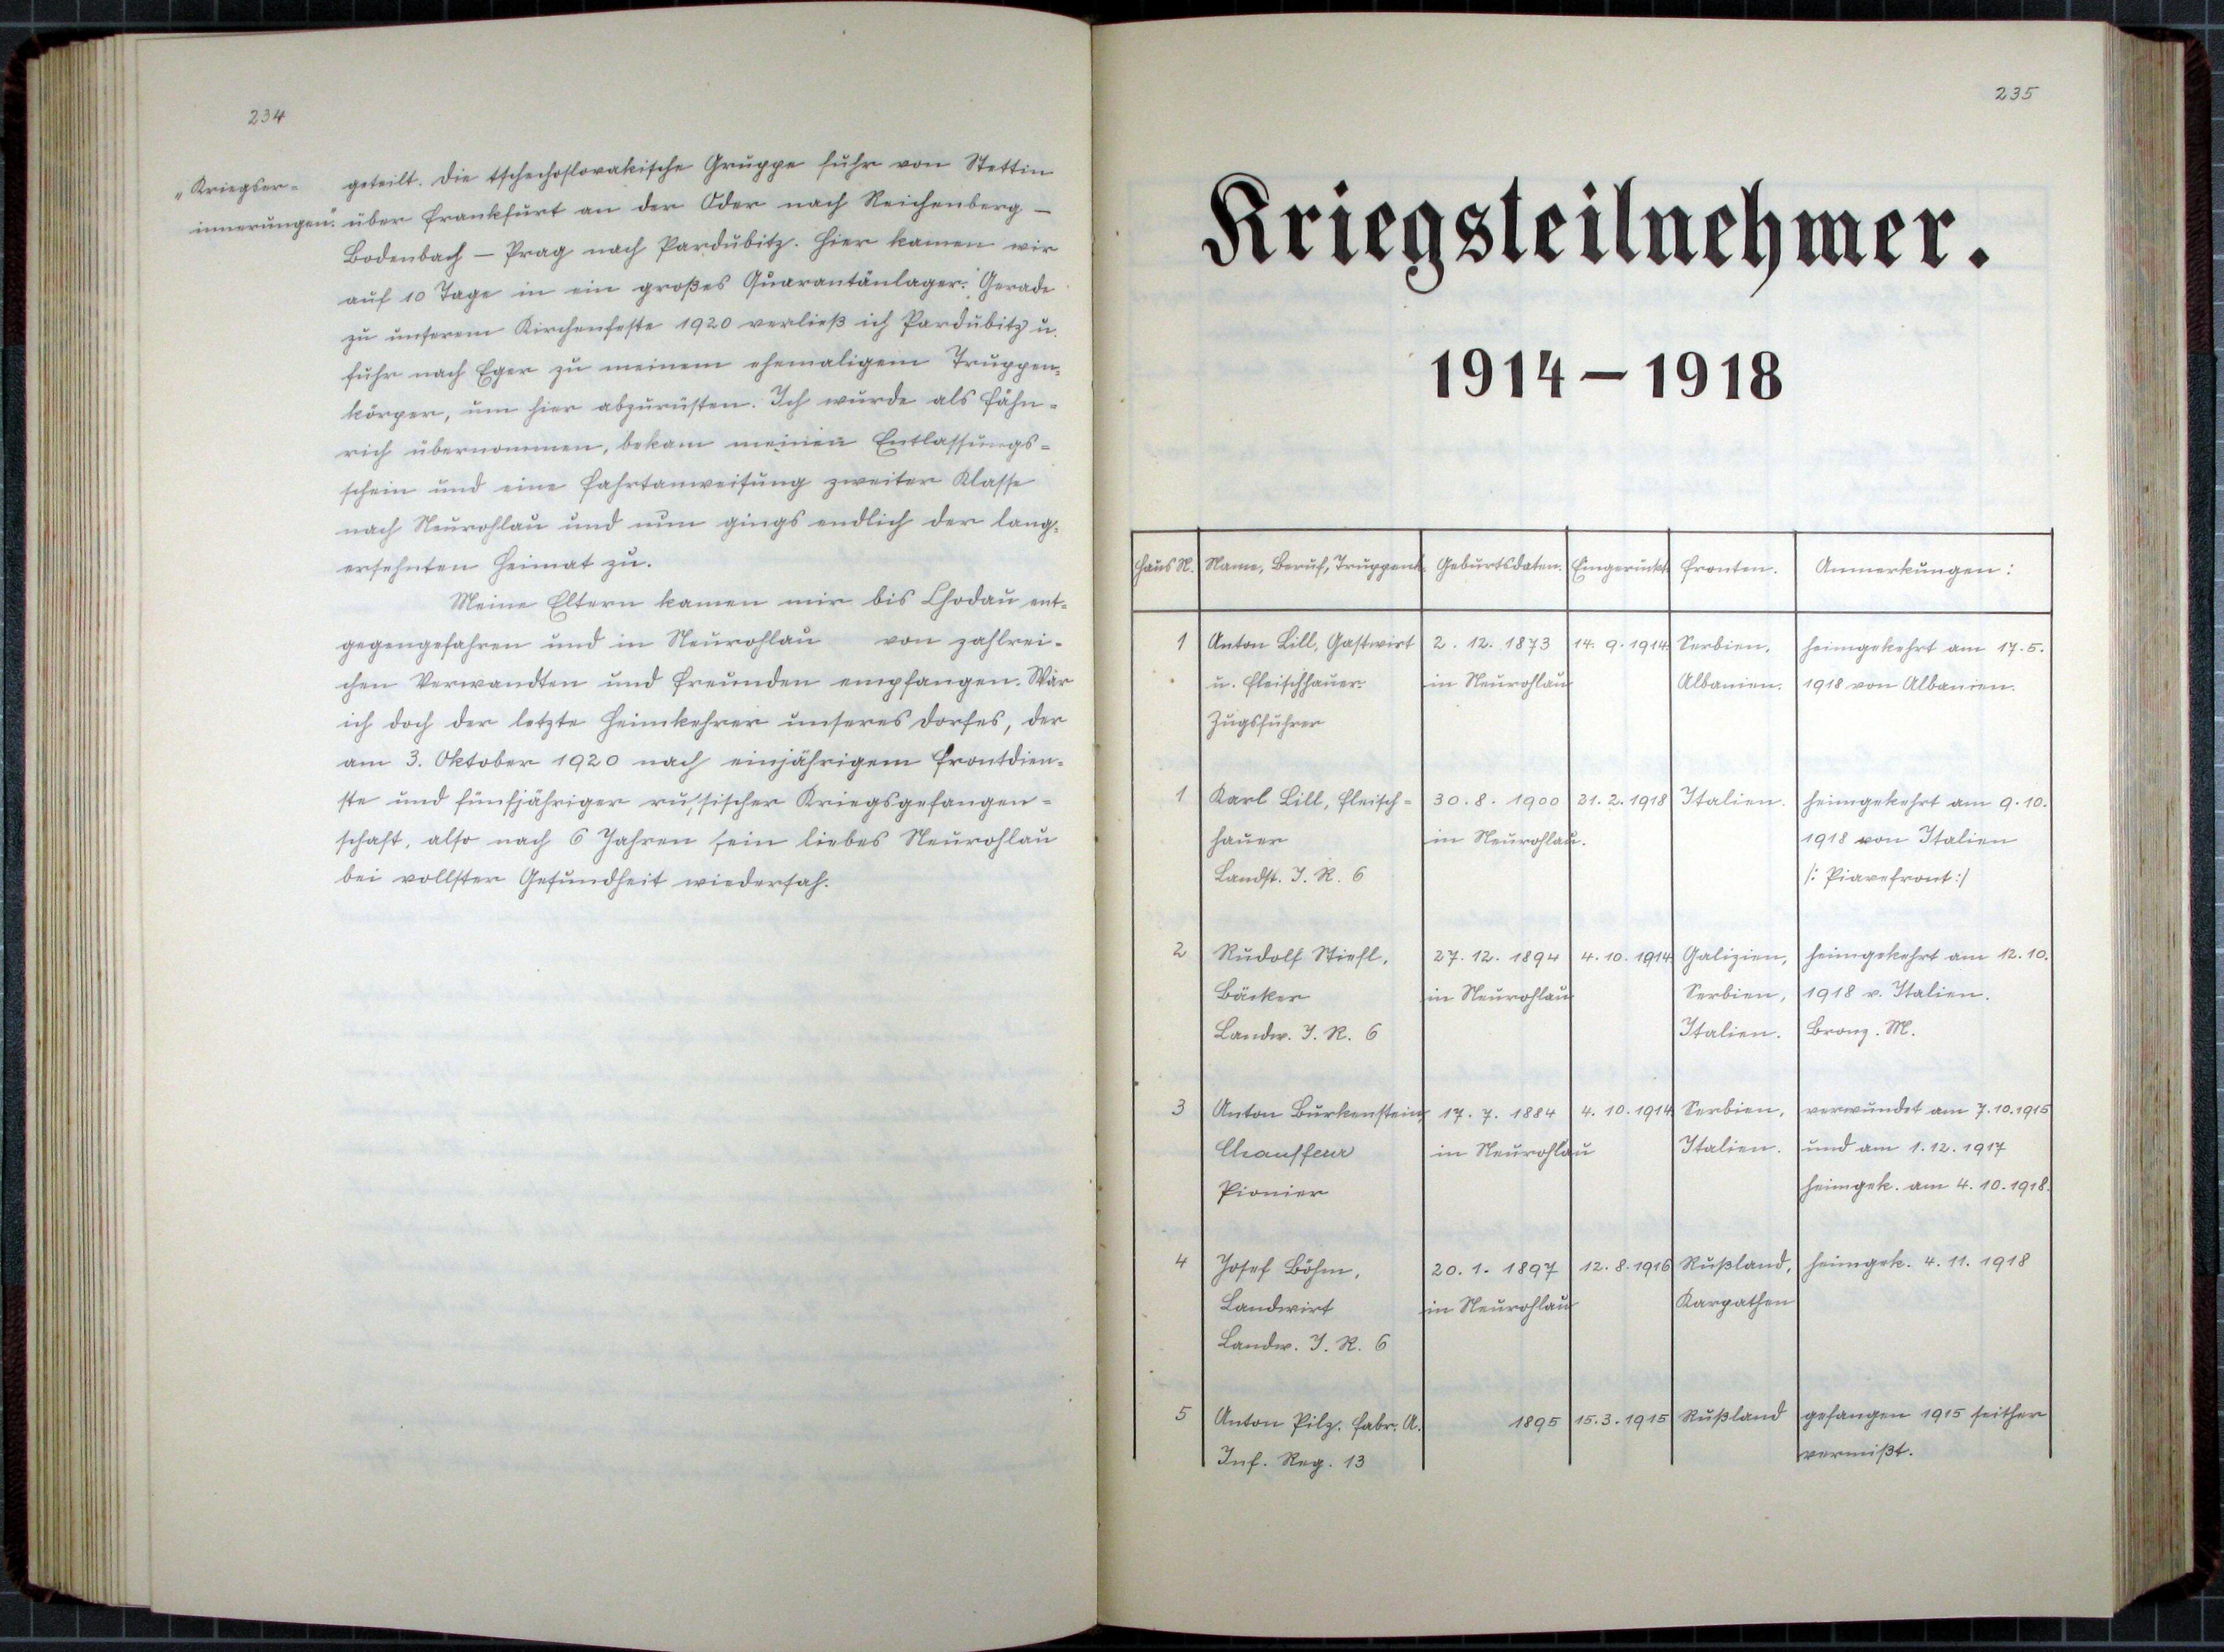 234
"Kriegser=
innerungen".
geteilt. Die tschechoslovakische Gruppe fuhr von Stettin
über Frankfurt an der Oder nach Reichenberg –
Bodenbach – Prag nach Pardubitz. Hier kamen wir
auf 10 Tage in ein großes Quarantänlager. Gerade
zu unserem Kirchenfeste 1920 verließ ich Pardubitz u.
fuhr nach Eger zu meinem ehemaligem Truppen=
körper, um hier abzurüsten. Ich wurde als Fähn=
rich übernommen, bekam meinen Entlassungs=
schein und eine Fahrtanweisung zweiter Klasse
nach Neurohlau und nun gings endlich der lang=
ersehnten Heimat zu.
Meine Eltern kamen mir bis Chodau ent=
gegengefahren und in Neurohlau von zahlrei=
chen Verwandten und Freunden empfangen. War
ich doch der letzte Heimkehrer unseres Dorfes, der
am 3. Oktober 1920 nach einjährigem Frontdien=
ste und fünfjähriger russischer Kriegsgefangen=
schaft, also nach 6 Jahren sein liebes Neurohlau
bei vollster Gesundheit wiedersah.
235
Kriegsteilnehmer.
1914 – 1918
Haus N. Name, Beruf, Truppenk. Geburtsdaten. Eingerückt. Fronten. Anmerkungen:
1 Anton Lill, Gastwirt 2. 12. 1873 14. 9. 1914. Serbien, heimgekehrt am 17. 5.
u. Fleischhauer. in Neurohlau Albanien. 1918 von Albanien.
Zugsführer
1 Karl Lill, Fleisch= 30. 8. 1900 21. 2. 1918 Italien. heimgekehrt am 9. 10.
hauer in Neurohlau. 1918 von Italien
Landst. I. R. 6 /: Piavefront :/
2 Rudolf Stiefl, 27. 12. 1894 4. 10. 1914 Galizien, heimgekehrt am 12. 10.
Bäcker in Neurohlau Serbien, 1918 v. Italien.
Landw. I. R. 6 Italien. Bronz. M.
3 Anton Burkenstein, 17. 7. 1884 4. 10. 1914 Serbien, verwundet am 7. 10. 1915
Chauffeur in Neurohlau Italien. und am 1. 12. 1917
Pionier heimgek. am 4. 10. 1918.
4 Josef Böhm, 20. 1. 1897 12. 8. 1916 Rußland, heimgek. 4. 11. 1918
Landwirt in Neurohlau Karpathen
Landw. I. R. 6
5 Anton Pilz. Fabr. A. 1895 15. 3. 1915 Rußland gefangen 1915 seither
Inf. Reg. 13 vermißt.